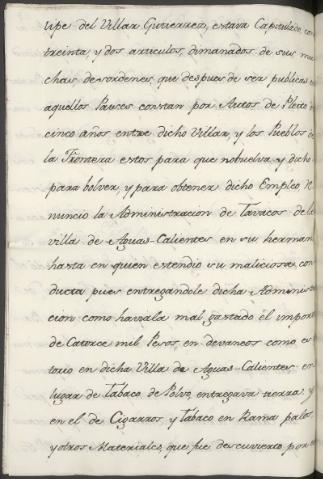 lipe del Villar Gutierrez, estava Capitulado, con
treinta, y dos articulos, dimanados de sus mu
chas desordenes, que despues de ser publicas en
aquellos Paises constan por Autos de Pleito de
cinco años entre dicho Villar, y los Pueblos de
la Frontera estos para que nobuelva, y dicho
para bolver, y para obtener dicho Empleo Re
nunciò la Administracion de Tavacos de la
villa de Aguas-Calientes en su herman
hasta en quien estendio su maliciosa con
ducta pues entregandole dicha Administra
cion como havala mal gastado el import
de Catorce mil Pesos, en devaneos como es
torio en dicha Villa de Aguas-Calientes: en
lugar de Tabaco de Polvo, entregava tierra, y
en el de Cigarros, y Tabaco en Rama palos
y otros Materiales, que fue descuvierto, por